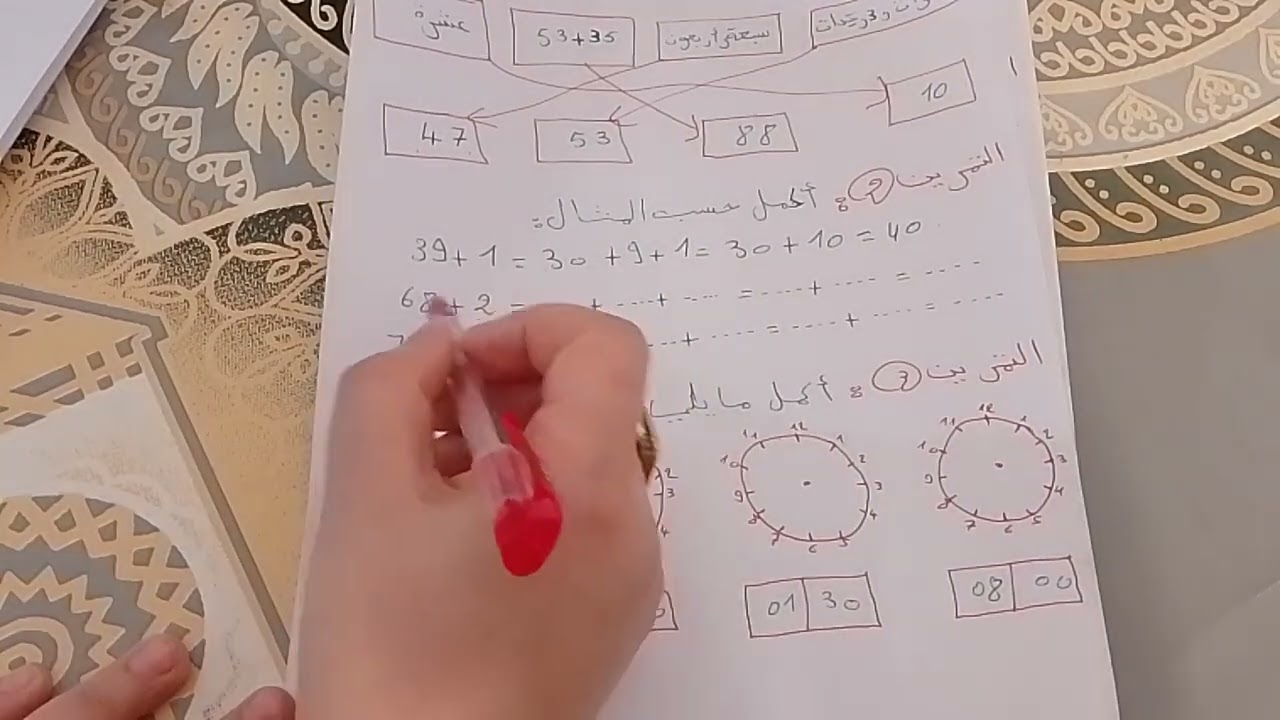 عشرة 53+35 سبعة و أربعون
47 53 88 10
التمرين 2 : أكمل حسب المثال :
39+1 = 30+9+1 = 30+10 = 40
68+2 = ....+....+.... = ....+.... = ....
7 ....+.... = ....+.... = ....
التمرين 3 : أكمل ما يلي
12 1 2 3 4 5 6 7 8 9 10 11
12 1 2 3 4 5 6 7 8 9 10 11
2 3 4
01 30
08 00